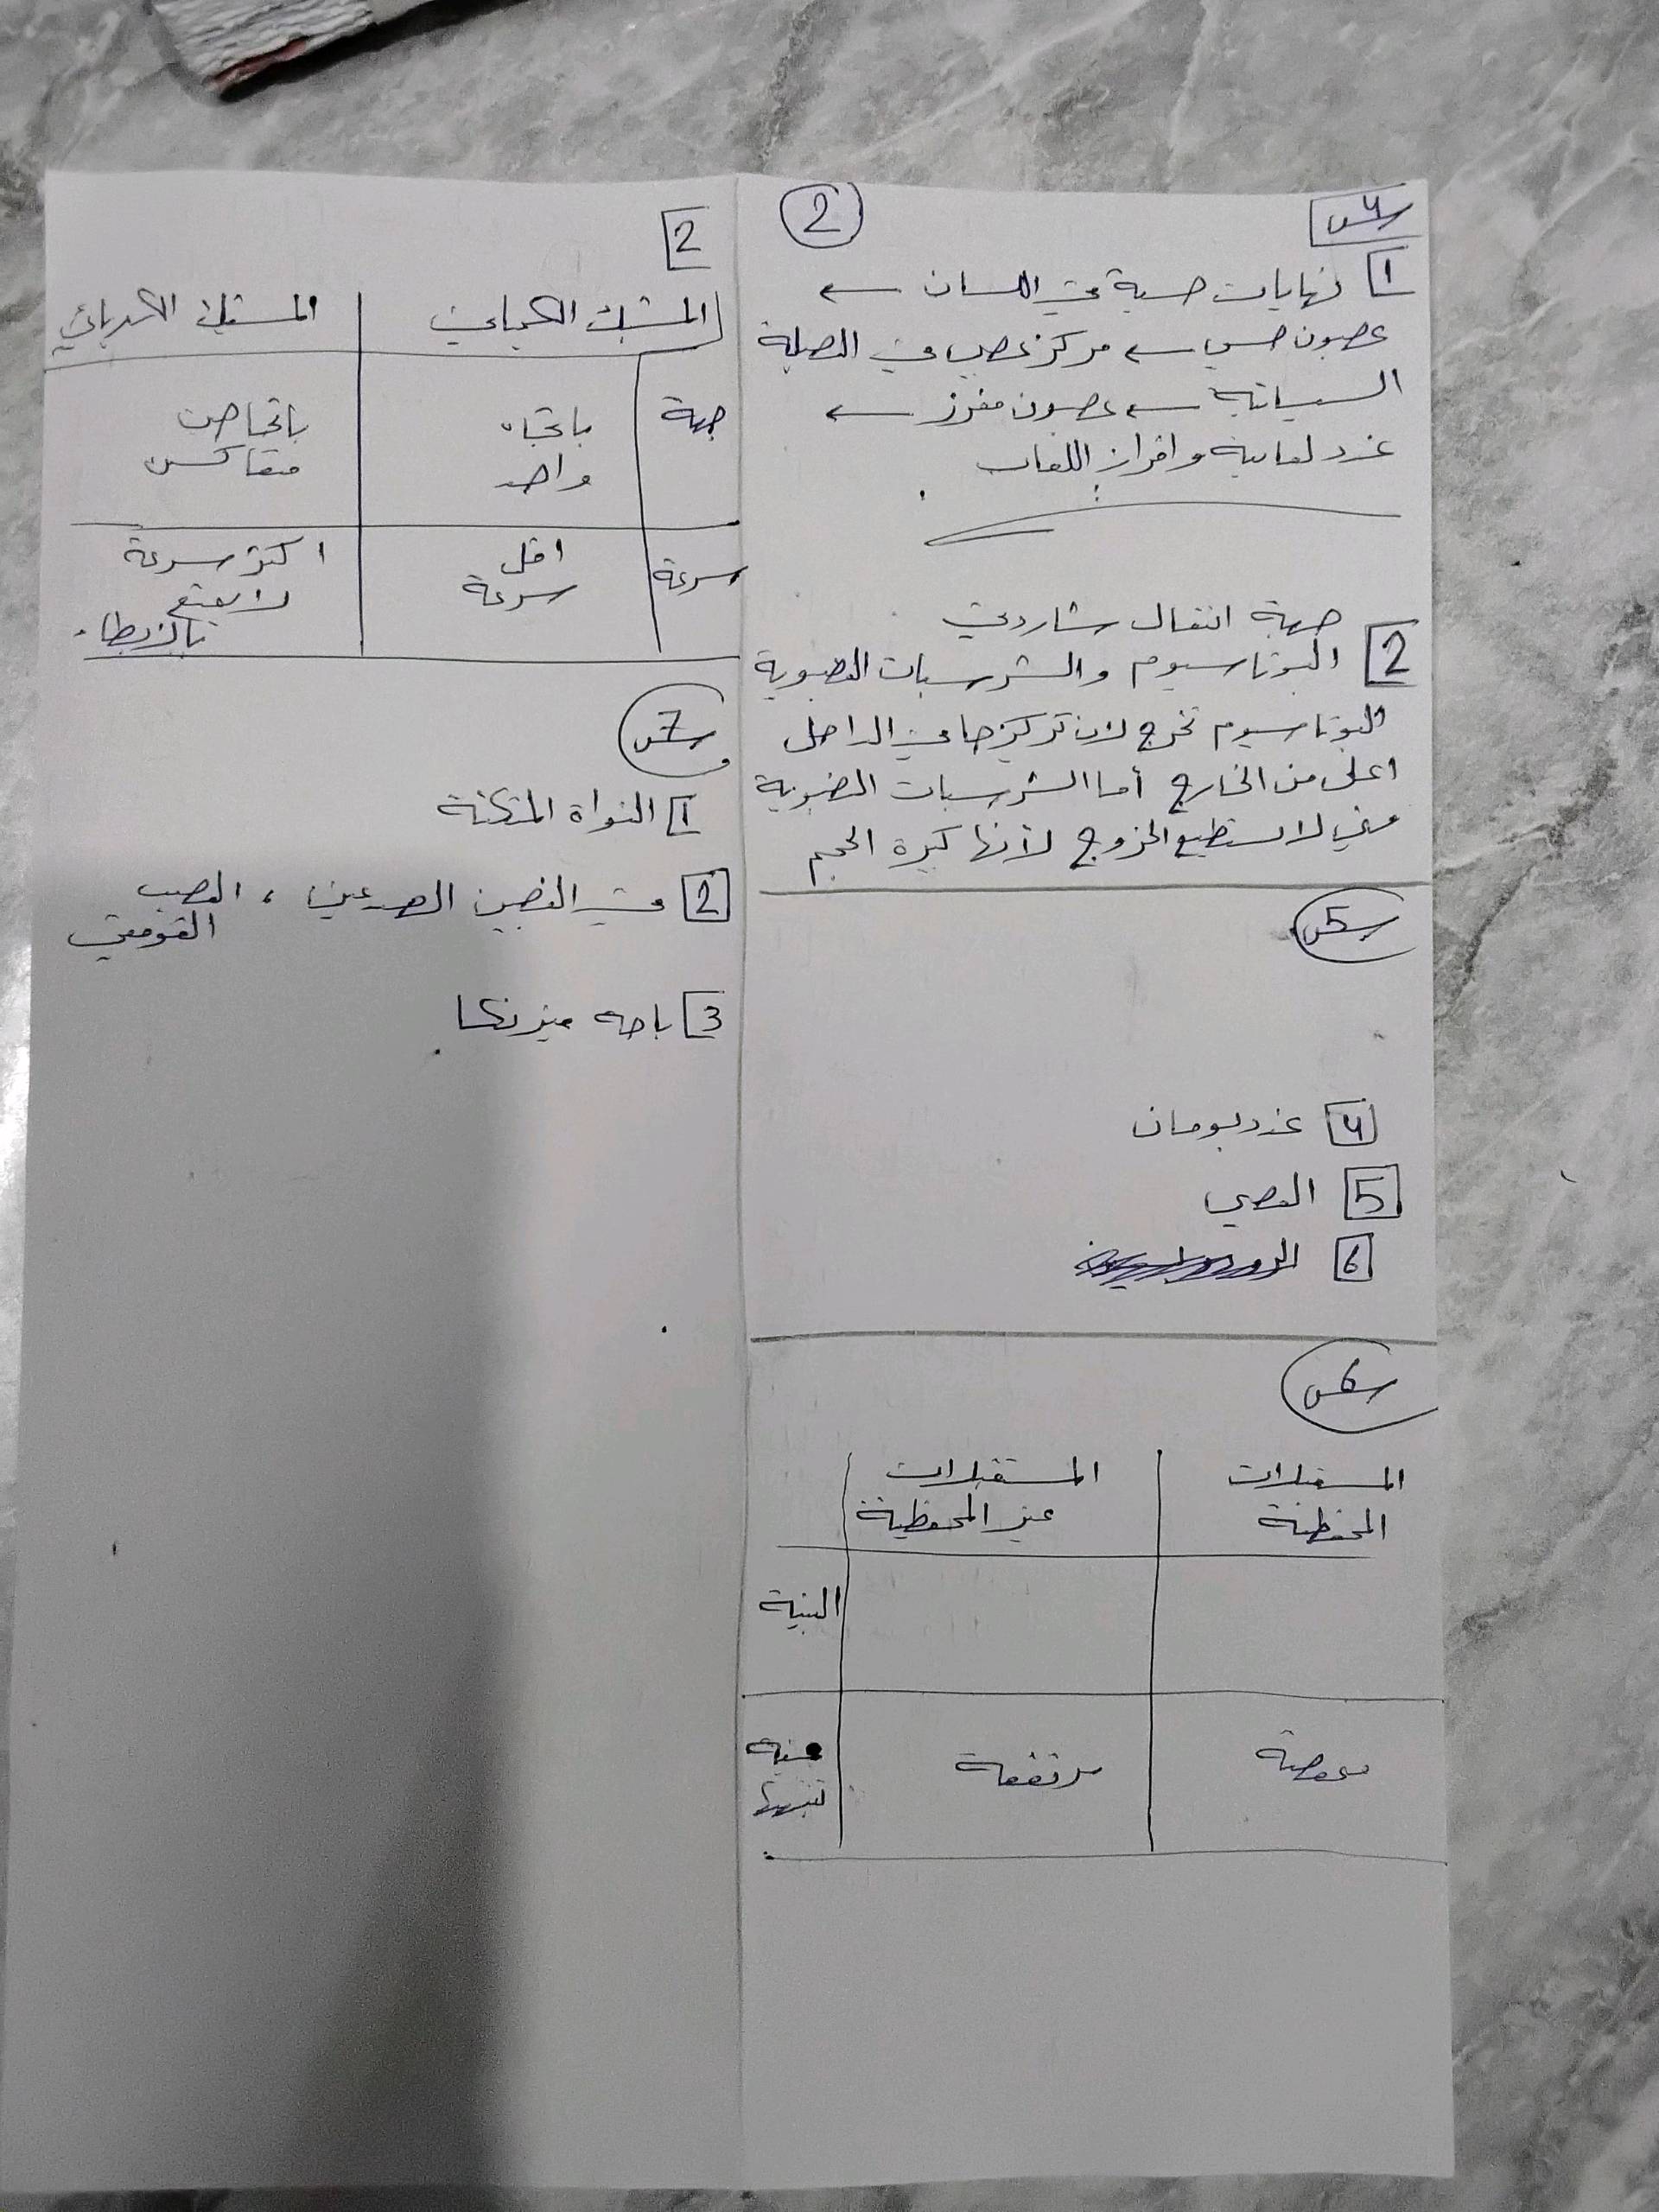 2
س4
1 نهايات حسية في اللسان ←
عصبون حسي ← مركز عصبي في البصلة
السيسائية ← عصبون مفرز ←
غدد لعابية وافراز اللعاب
جهة انتقال شاردتي
2 البوتاسيوم والشرسبات العضوية
البوتاسيوم تخرج لان تركيزها في الداخل
اعلى من الخارج أما الشرسبات العضوية
فهي لا تستطيع الخروج لأنها كبيرة الحجم
س5
4 غدد بومان
5 العصبي
6
س6
المستقبلات المستقبلات
المحفظية غير المحفظية
البنية
عتبة منخفضة مرتفعة
تنبيهها
2
المشبك الكيميائي المشبك الكهربائي
جهة باتجاه باتجاهين
واحد متعاكسين
سرعة اقل اكثر سرعة
سرعة لا يتمتع
بالإبطاء.
س7
1 النواة المتكئة
2 في الفصين الصدغيين ، العصب
القوقعي
3 باحة فيرنكا